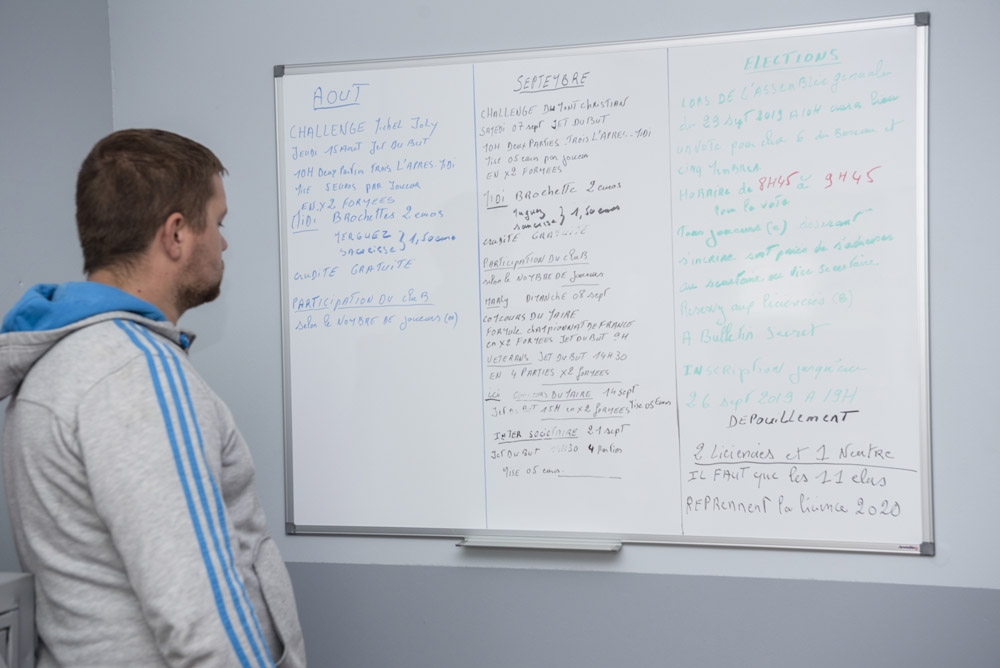 AOUT
CHALLENGE Michel Joly
JEUDI 15 AOUT JET DU BUT
10H Deux Parties TROIS L'APRES MIDI
MISE 5 EUROS PAR JOUEUR
EN X2 FORMEES
MIDI BROCHETTES 2 euros
MERGUEZ } 1,50 euro
SAUCISSE
CRUDITÉ GRATUITE
PARTICIPATION DU CLUB
selon LE NOMBRE DE joueurs (es)
SEPTEMBRE
CHALLENGE DUMONT CHRISTIAN
SAMEDI 07 sept JET DU BUT
10H DEUX PARTIES TROIS L'APRE.. MIDI
MISE 05 euros par joueur
EN X2 FORMEES
MIDI BROCHETTE 2 euros
Merguez } 1,50 euro
saucisse
CRUDITÉ GRATUITE
PARTICIPATION DU CLUB
selon le NOMBRE DE joueurs
MARLY DIMANCHE 08 sept
CONCOURS DU MAIRE
FORMULE CHAMPIONNAT DE FRANCE
en X2 FORMEES JET DU BUT 9H
VETERANS JET DU BUT 14H30
EN 4 PARTIES X2 FORMEES
CONCOURS DU MAIRE 14 sept
JET DU BUT 15H en X2 FORMEES MISE 05 euros
INTER SOCIETAIRE 21 sept
JET DU BUT 4 Parties
MISE 05 euros
ÉLECTIONS
LORS DE L'ASSEMBLÉE generale
du 29 sept 2019 A 10H aura lieu
un vote pour élire 6 du Bureau et
cinq MEMBRES
HORAIRE de 8H45 à 9H45
pour le vote
Tous joueurs (es)
s'inscrire sont priés de s'adresser
au secretaire ou vice secretaire
Reservez aux licenciés (es)
A Bulletin Secret
INScription jusqu'au
26 sept 2019 A 19H
DEPOUILLEMENT
2 Liciencies et 1 Neutre
IL FAUT que les 11 elus
REPRENNENT la licence 2020